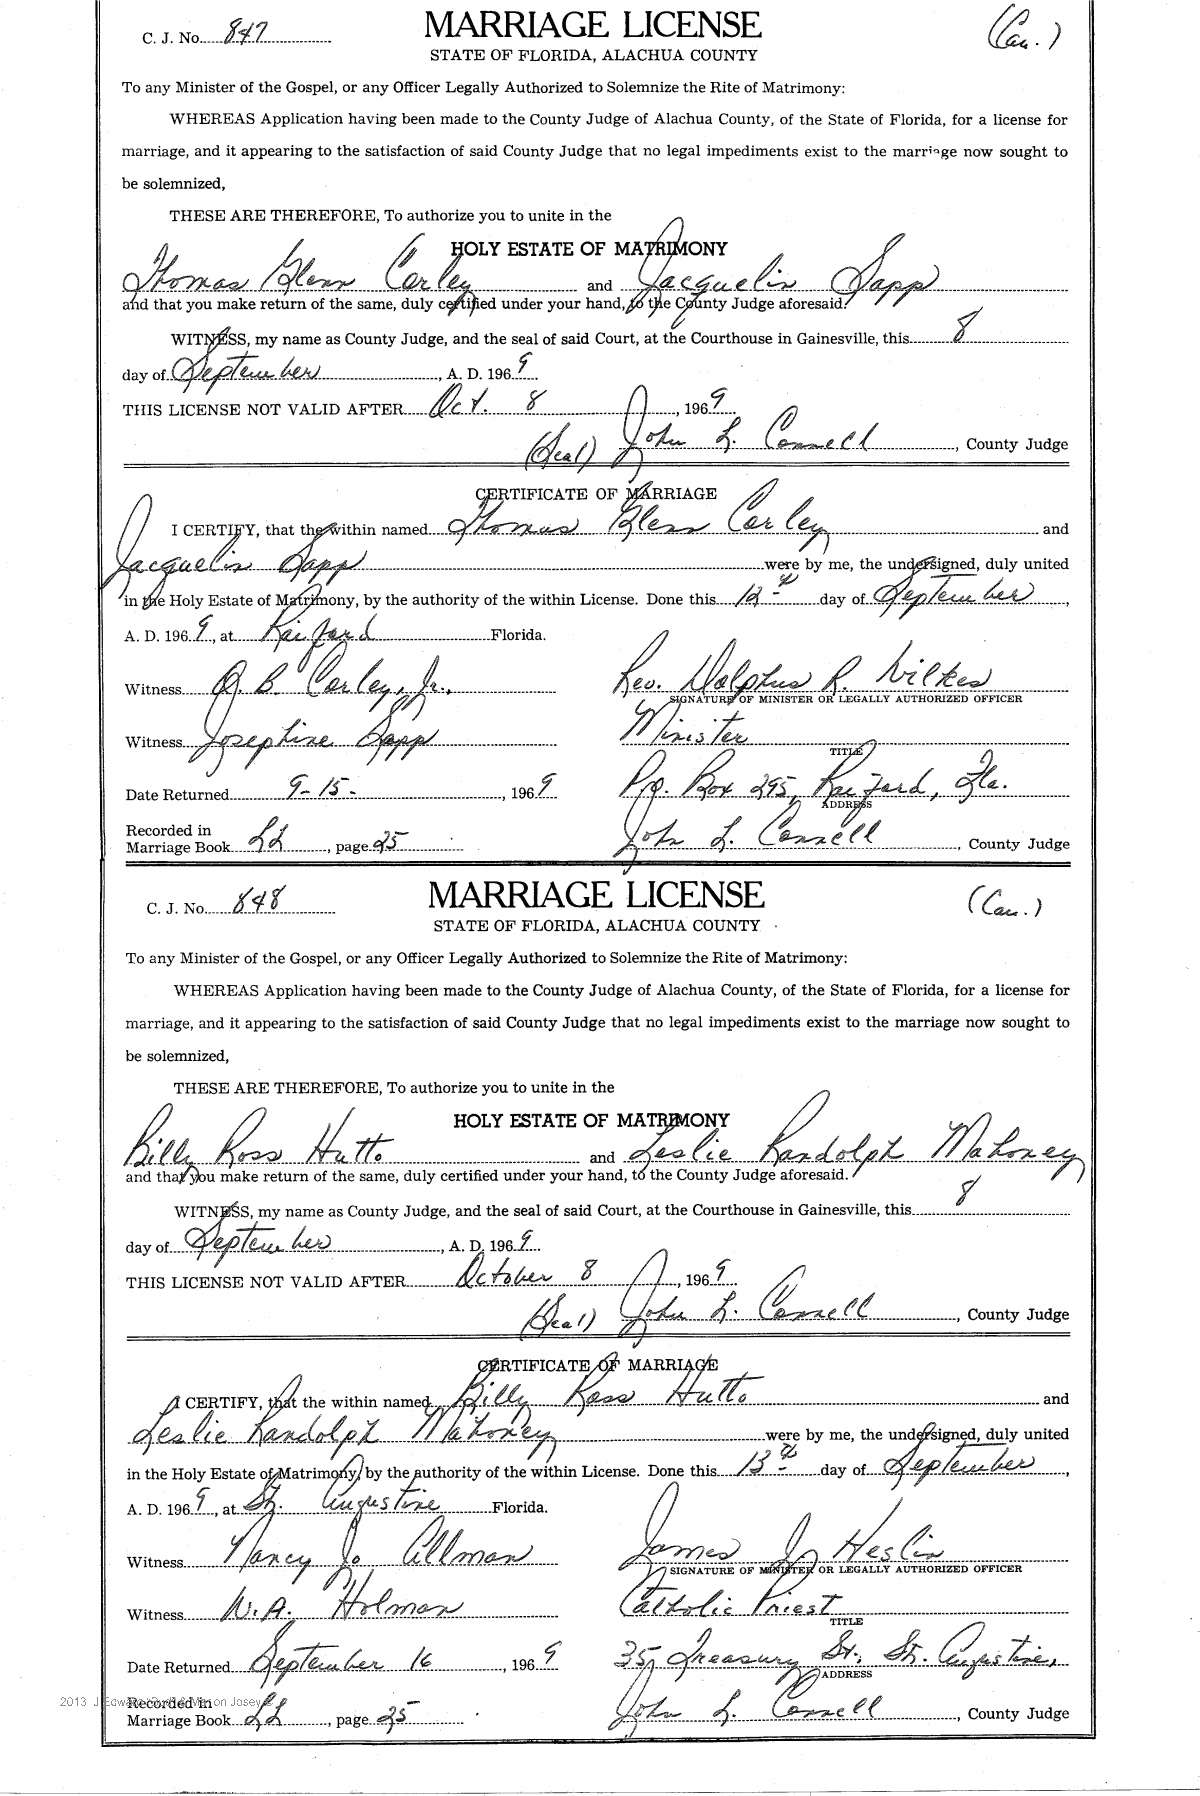 C. J. No. 847 MARRIAGE LICENSE (Cau.)
STATE OF FLORIDA, ALACHUA COUNTY
To any Minister of the Gospel, or any Officer Legally Authorized to Solemnize the Rite of Matrimony:
WHEREAS Application having been made to the County Judge of Alachua County, of the State of Florida, for a license for
marriage, and it appearing to the satisfaction of said County Judge that no legal impediments exist to the marriage now sought to
be solemnized,
THESE ARE THEREFORE, To authorize you to unite in the
HOLY ESTATE OF MATRIMONY
Thomas Glenn Corley and Jacquelin Sapp
and that you make return of the same, duly certified under your hand, to the County Judge aforesaid.
WITNESS, my name as County Judge, and the seal of said Court, at the Courthouse in Gainesville, this 8
day of September, A. D. 1969
THIS LICENSE NOT VALID AFTER Oct. 8, 1969
(Seal) John L. Connell, County Judge
CERTIFICATE OF MARRIAGE
I CERTIFY, that the within named Thomas Glenn Corley and
Jacquelin Sapp were by me, the undersigned, duly united
in the Holy Estate of Matrimony, by the authority of the within License. Done this 12th day of September,
A. D. 1969, at Raiford Florida.
Witness O. B. Corley, Jr., Rev. Dolphus R. Wilkes
SIGNATURE OF MINISTER OR LEGALLY AUTHORIZED OFFICER
Witness Josephine Sapp Minister
TITLE
Date Returned 9-15-, 1969 P.O. Box 295, Raiford, Fla.
ADDRESS
Recorded in
Marriage Book LL, page 25 John L. Connell, County Judge
C. J. No. 848 MARRIAGE LICENSE (Cau.)
STATE OF FLORIDA, ALACHUA COUNTY
To any Minister of the Gospel, or any Officer Legally Authorized to Solemnize the Rite of Matrimony:
WHEREAS Application having been made to the County Judge of Alachua County, of the State of Florida, for a license for
marriage, and it appearing to the satisfaction of said County Judge that no legal impediments exist to the marriage now sought to
be solemnized,
THESE ARE THEREFORE, To authorize you to unite in the
HOLY ESTATE OF MATRIMONY
Billy Ross Hutto and Leslie Randolph Mahoney
and that you make return of the same, duly certified under your hand, to the County Judge aforesaid.
WITNESS, my name as County Judge, and the seal of said Court, at the Courthouse in Gainesville, this 8
day of September, A. D. 1969
THIS LICENSE NOT VALID AFTER October 8, 1969
(Seal) John L. Connell, County Judge
CERTIFICATE OF MARRIAGE
I CERTIFY, that the within named Billy Ross Hutto and
Leslie Randolph Mahoney were by me, the undersigned, duly united
in the Holy Estate of Matrimony, by the authority of the within License. Done this 13th day of September,
A. D. 1969, at St. Augustine Florida.
Witness Nancy Jo Allman James J. Heslin
SIGNATURE OF MINISTER OR LEGALLY AUTHORIZED OFFICER
Witness W. A. Holman Catholic Priest
TITLE
Date Returned September 16, 1969 35 Treasury St., St. Augustine,
ADDRESS
2013 Recorded in Josey
Marriage Book LL, page 25 John L. Connell, County Judge